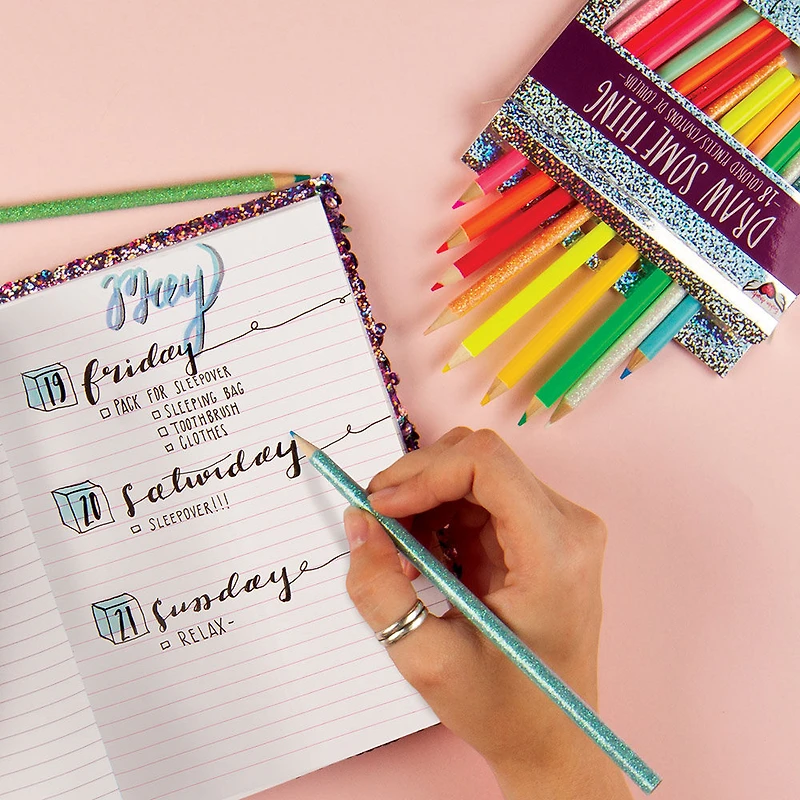 May
19 friday
PACK FOR SLEEPOVER
SLEEPING BAG
TOOTHBRUSH
CLOTHES
20 Saturday
SLEEPOVER!!!
21 Sunday
RELAX-
DRAW SOMETHING
-18 COLORED PENCILS/CRAYONS DE COULEUR-